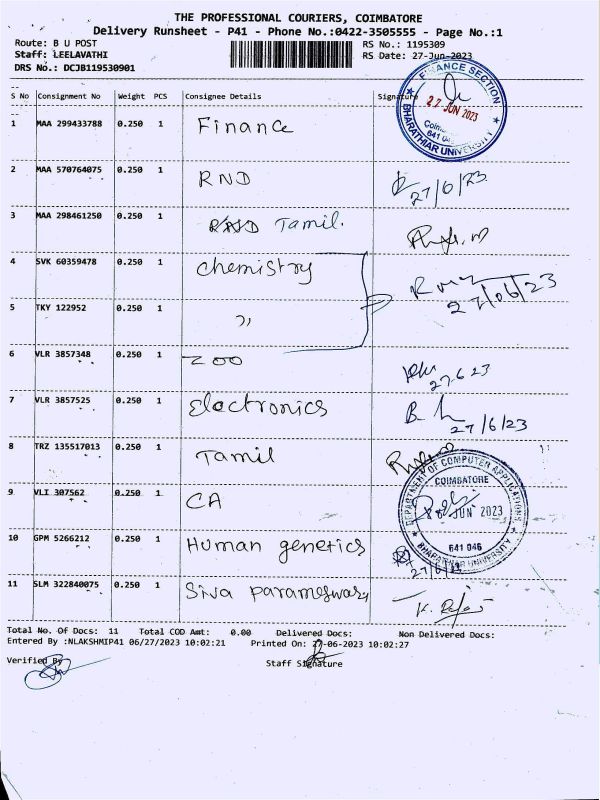 THE PROFESSIONAL COURIERS, COIMBATORE
Delivery Runsheet - P41 - Phone No.:0422-3505555 - Page No.:1
Route: B U POST RS No.: 1195309
Staff: LEELAVATHI RS Date: 27-Jun-2023
DRS No.: DCJB119530901
S No Consignment No Weight PCS Consignee Details Signature
FINANCE SECTION
27 JUN 2023
641 046
BHARATHIAR UNIVERSITY
1 MAA 299433788 0.250 1 Finance
2 MAA 570764075 0.250 1 RND 27/6/23
3 MAA 298461250 0.250 1 Tamil.
4 SVK 60359478 0.250 1 chemistry 27/06/23
5 TKY 122952 0.250 1 ,,
6 VLR 3857348 0.250 1 ZOO 27.6.23
7 VLR 3857525 0.250 1 Electronics 27/6/23
8 TRZ 135517013 0.250 1 Tamil
DEPARTMENT OF COMPUTER APPLICATIONS
COIMBATORE
JUN 2023
641 046
BHARATHIAR UNIVERSITY
9 VLI 307562 0.250 1 CA
10 GPM 5266212 0.250 1 Human genetics
11 SLM 322840075 0.250 1 Siva parameswary
Total No. Of Docs: 11 Total COD Amt: 0.00 Delivered Docs: Non Delivered Docs:
Entered By :NLAKSHMIP41 06/27/2023 10:02:21 Printed On: 27-06-2023 10:02:27
Verified By Staff Signature